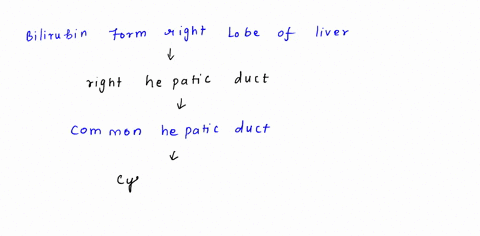 Bilirubin Form right Lobe of liver
↓
right hepatic duct
↓
Common hepatic duct
↓
Cy